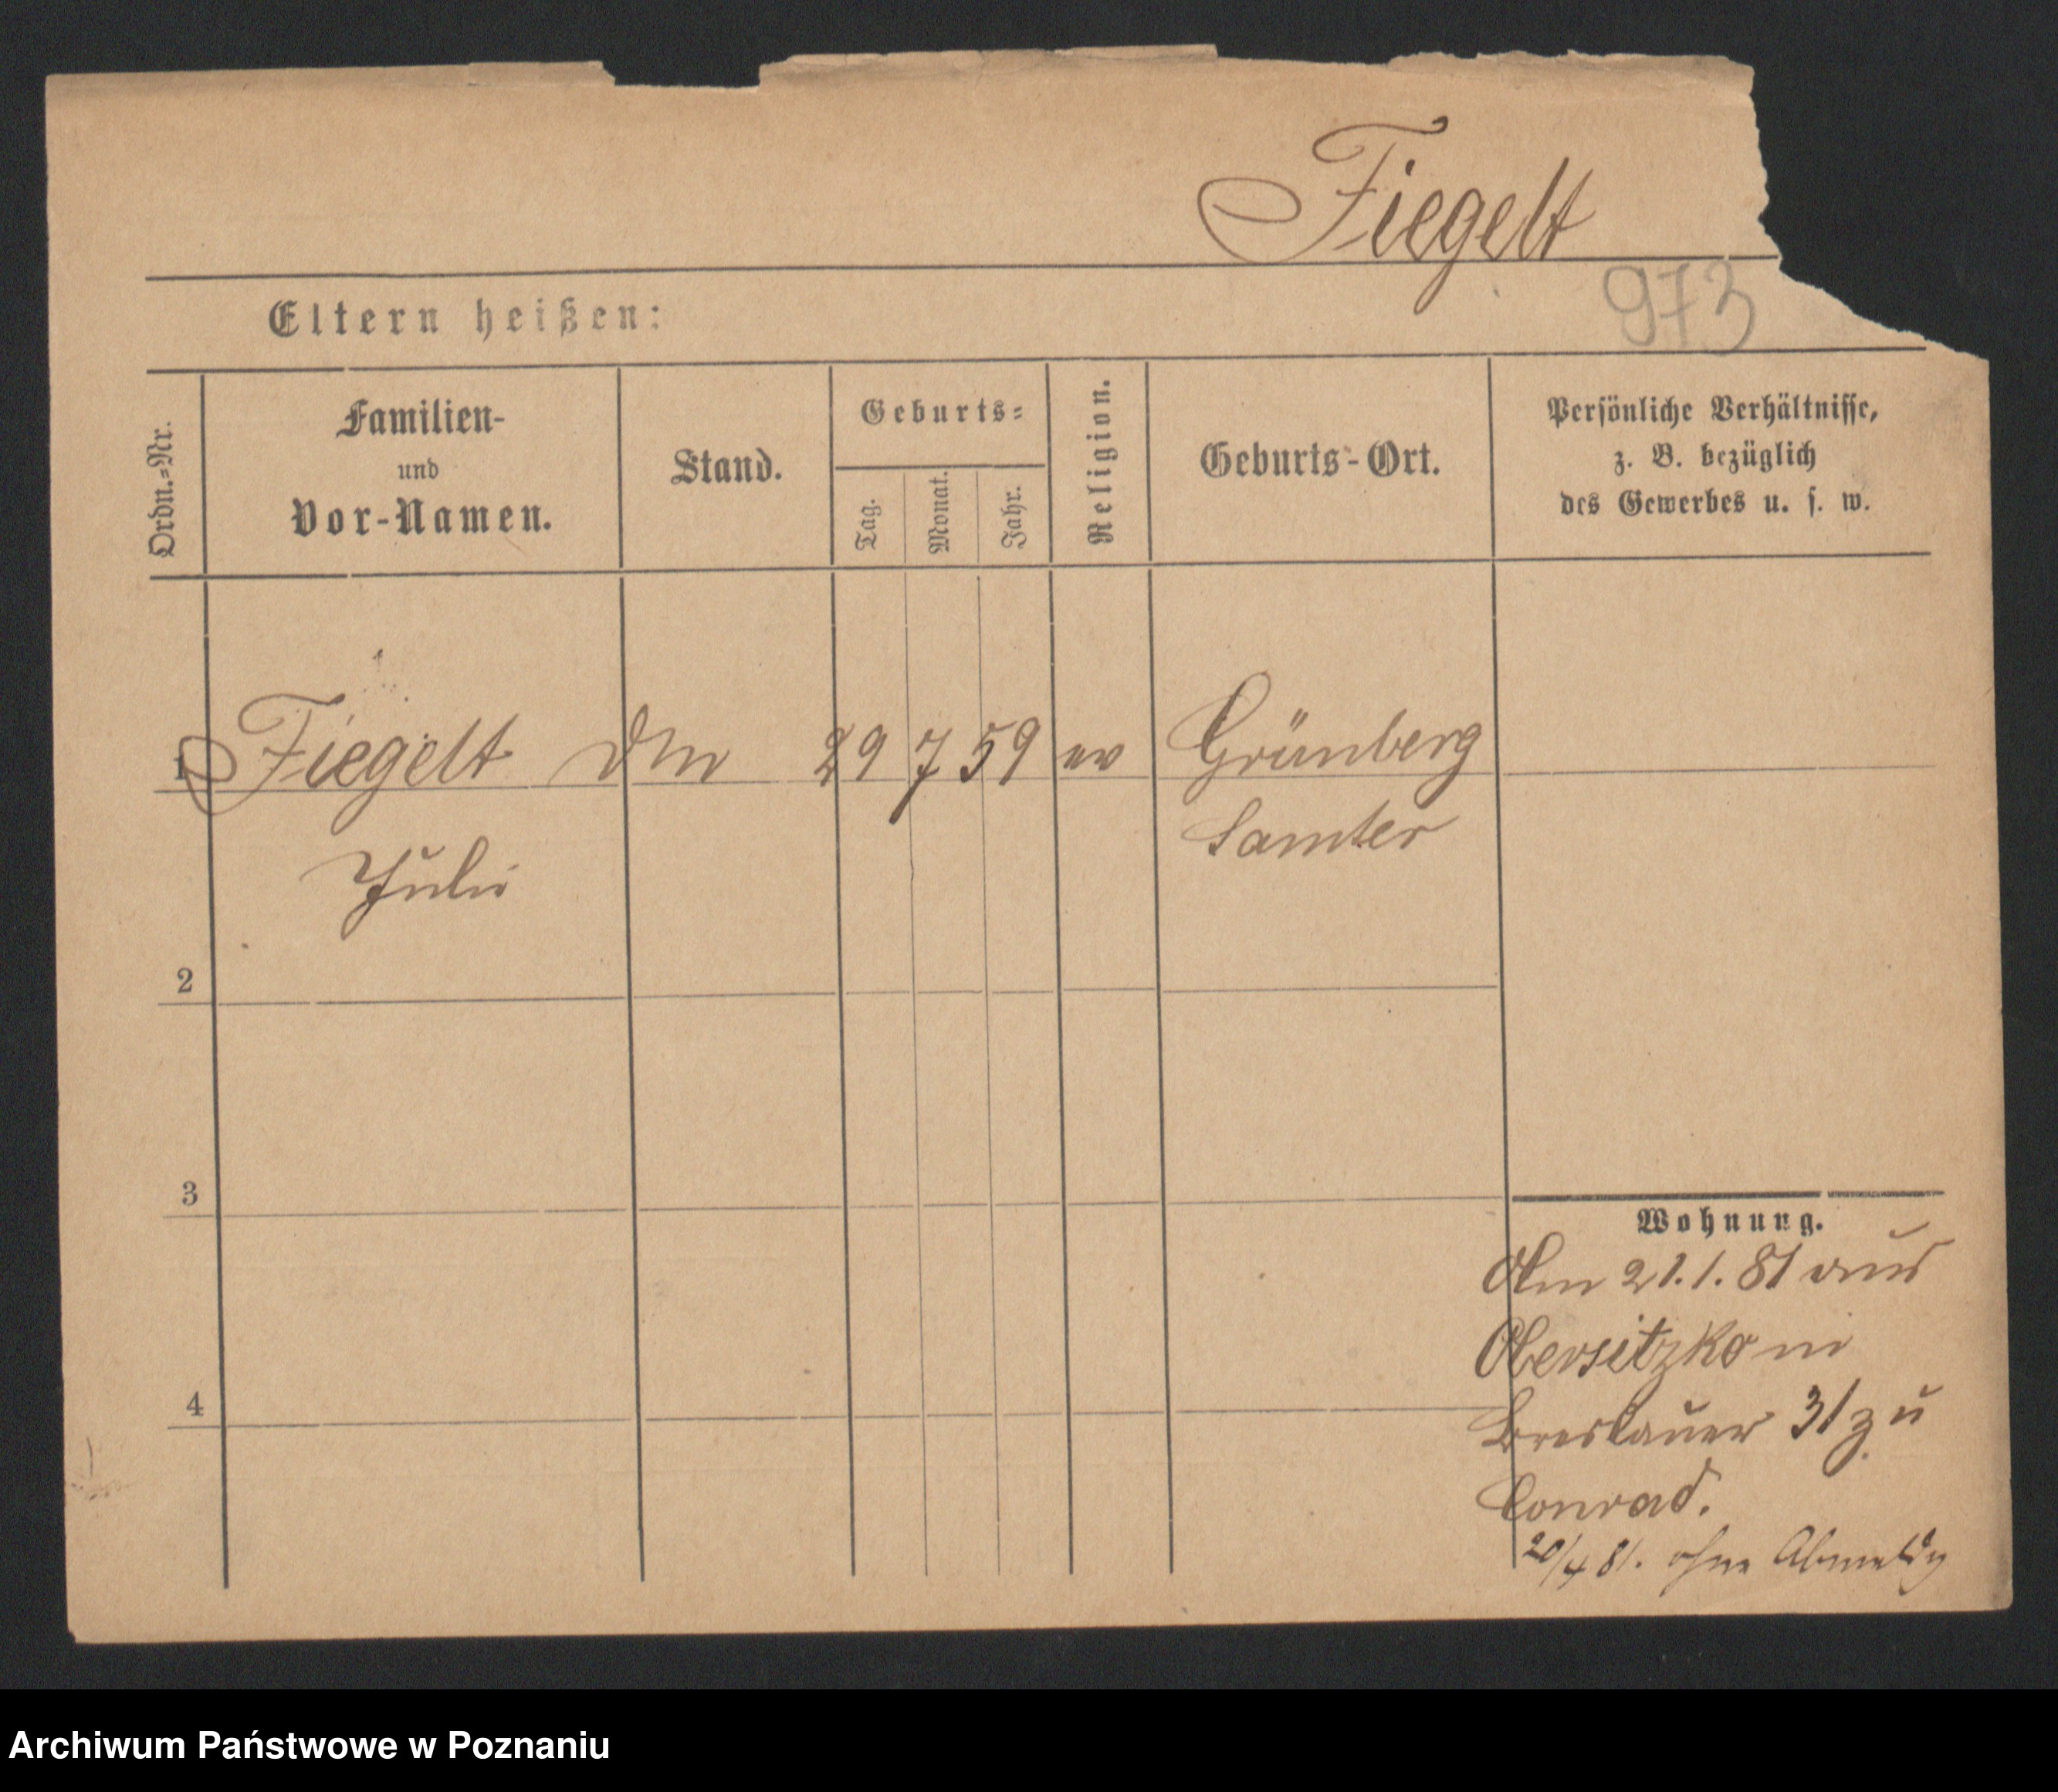 Fiegelt
973
Eltern heißen:
Ordn.-Nr.
Familien-
und
Vor-Namen.
Stand.
Geburts-
Tag.
Monat.
Jahr.
Religion.
Geburts-Ort.
Persönliche Verhältnisse,
z. B. bezüglich
des Gewerbes u. s. w.
1 Fiegelt 29 7 59 ev Grünberg
Samter
2
3
4
Wohnung.
Am 21.1.81 aus
Obersitzko in
Breslauer 31 zu
Conrad.
20/4 81. ohne Abmeldg
Archiwum Państwowe w Poznaniu